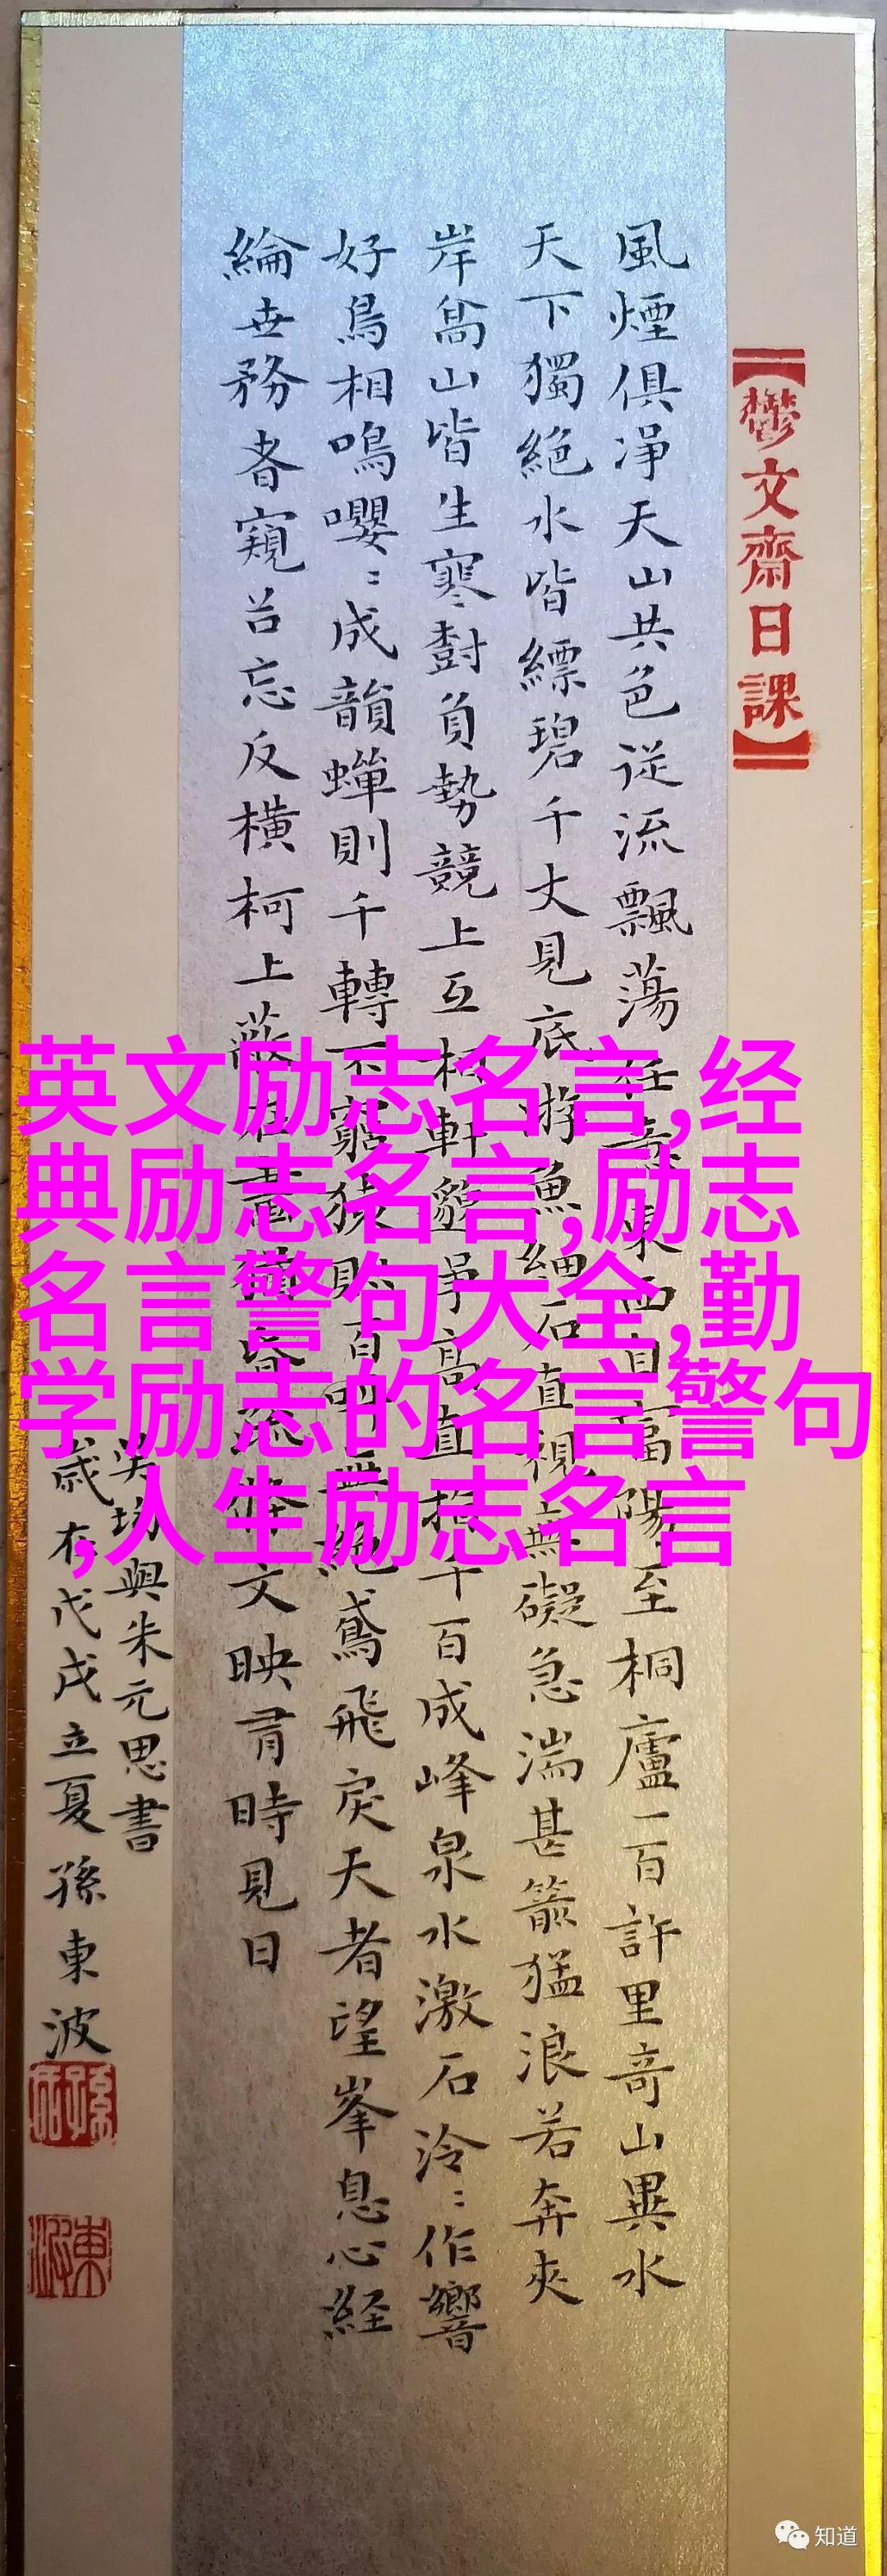 【鬱文齋日課】
風煙俱淨天山共色從流飄蕩任意東西自富陽至桐廬一百許里奇山異水
天下獨絕水皆縹碧千丈見底游魚細石直視無礙急湍甚箭猛浪若奔夾
岸高山皆生寒樹負勢競上互相軒邈爭高直指千百成峰泉水激石泠〻作響
好鳥相鳴嚶〻成韻蟬則千轉不窮猿則百叫無絕鳶飛戾天者望峯息心経
綸世務者窺谷忘反橫柯上蔽在晝猶昏疏條交映有時見日
吳均與朱元思書
歲在戊戌立夏孫東波
英文励志名言,经
典励志名言,励志
名言警句大全,勤
学励志的名言警句
,人生励志名言
知道